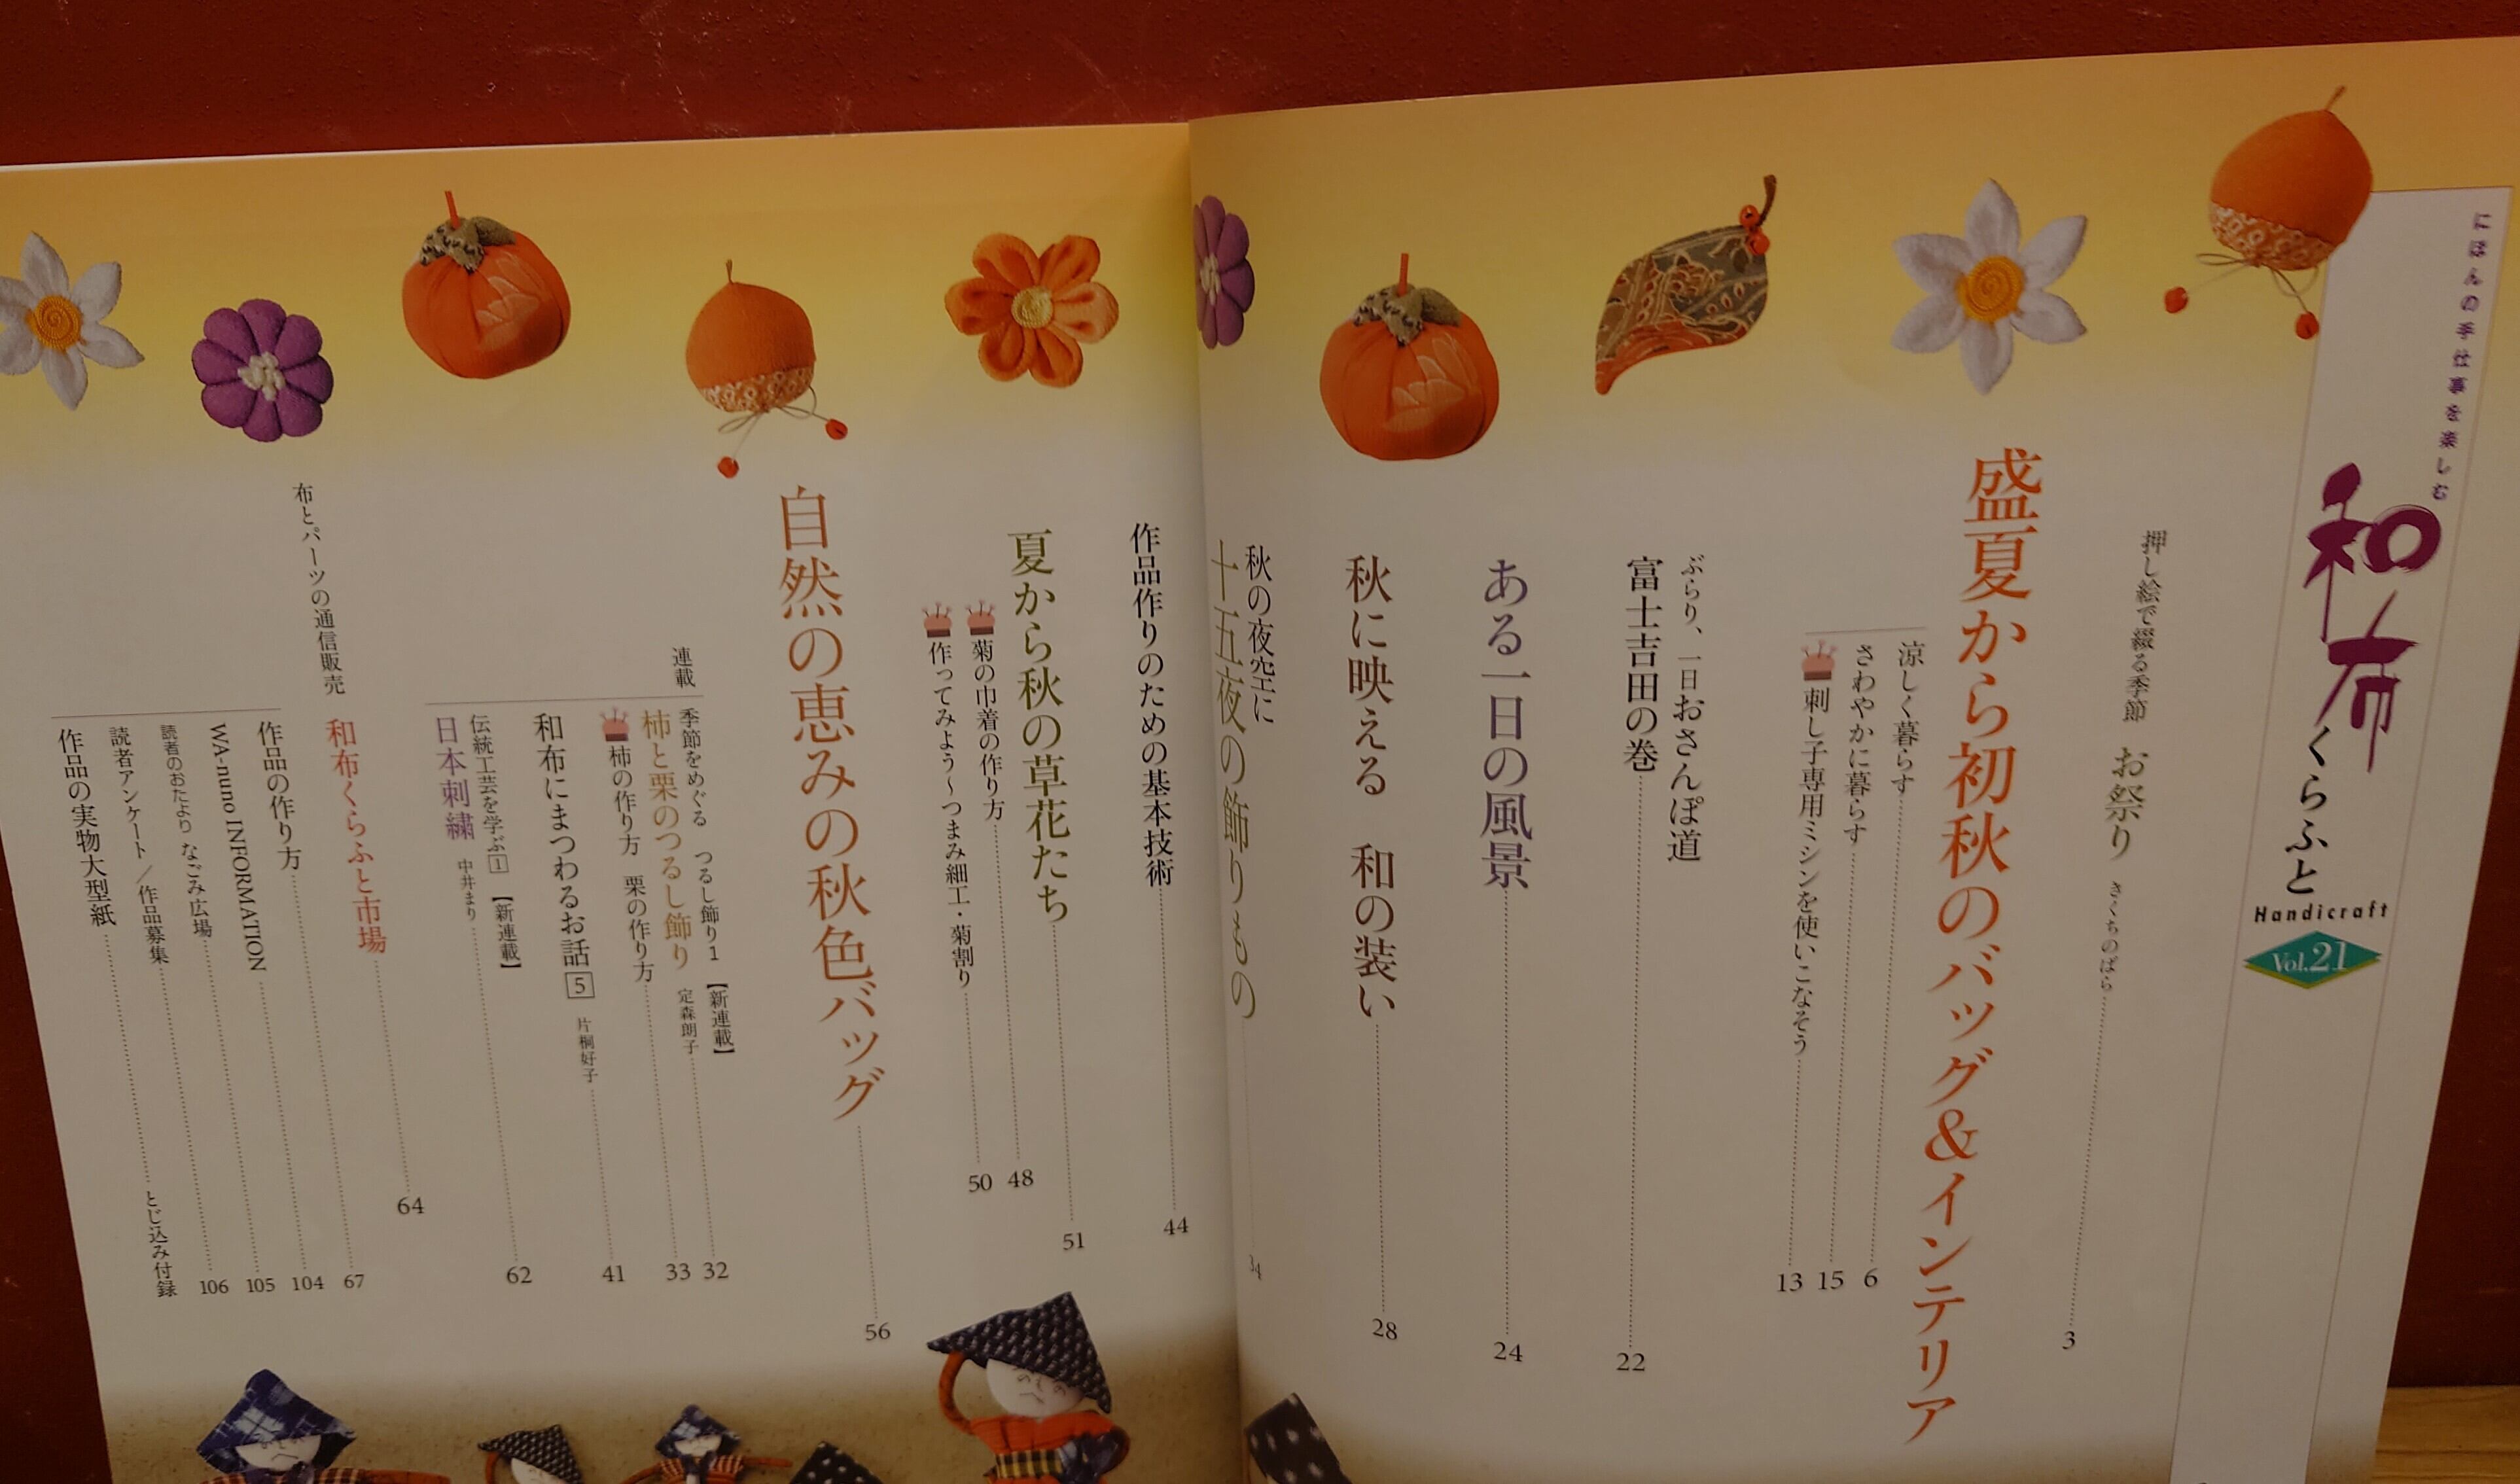 にほんの手仕事を楽しむ
和布くらふと
Handicraft
Vol.21
押し絵で綴る季節 お祭り さくちのばら 3
盛夏から初秋のバッグ&インテリア
涼しく暮らす 6
さわやかに暮らす 15
刺し子専用ミシンを使いこなそう 13
ぶらり、一日おさんぽ道
富士吉田の巻 22
ある一日の風景 24
秋に映える 和の装い 28
秋の夜空に
十五夜の飾りもの 34
作品作りのための基本技術 44
夏から秋の草花たち 51
菊の巾着の作り方 48
作ってみよう〜つまみ細工・菊割り 50
自然の恵みの秋色バッグ 56
連載
季節をめぐる つるし飾り1 【新連載】
柿と栗のつるし飾り 定森朗子 32
柿の作り方 栗の作り方 33
和布にまつわるお話 5 片桐好子 41
伝統工芸を学ぶ 1 【新連載】
日本刺繍 中井まり 62
布とパーツの通信販売
和布くらふと市場 64
作品の作り方 67
WA-nuno INFORMATION 104
読者のおたより なごみ広場 105
読者アンケート／作品募集 106
作品の実物大型紙 とじ込み付録